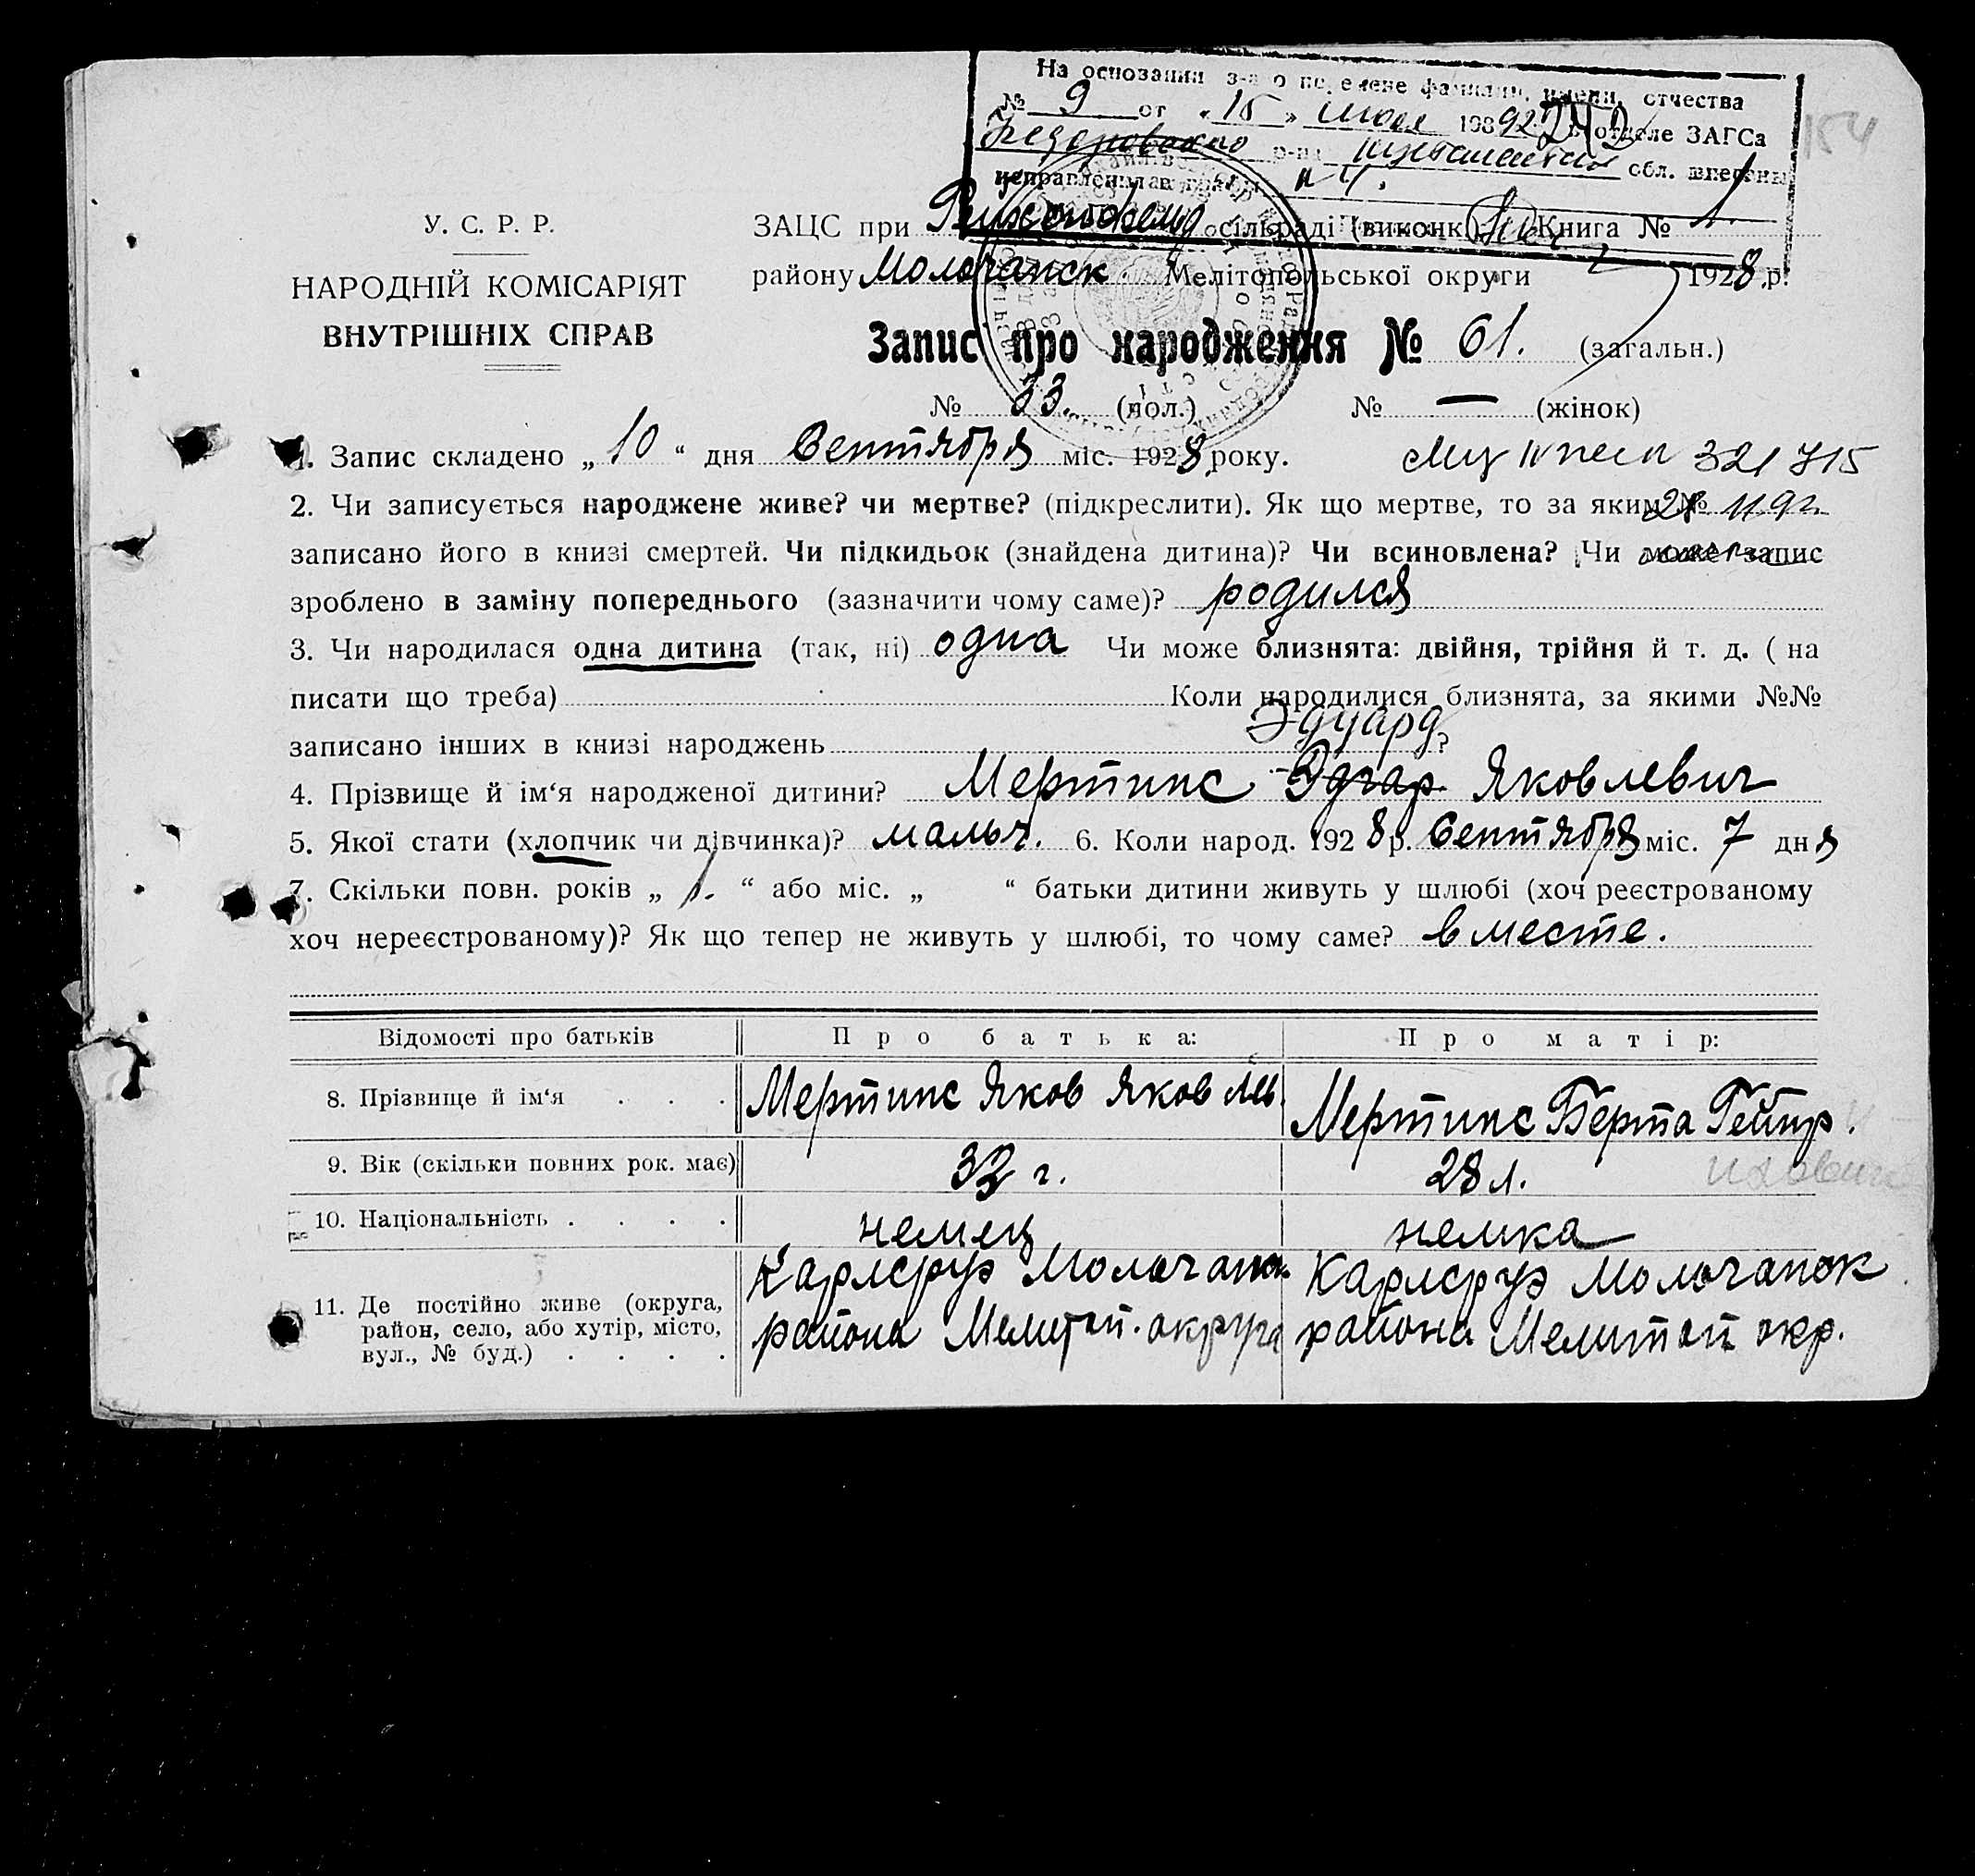 На основании з-а о перемене фамилии, имени, отчества
№ 9 от «15» июля 1992 в отделе ЗАГСа
р-на обл. внесены
исправления в графы № 4.
154
242
У. С. Р. Р.
НАРОДНІЙ КОМІСАРІЯТ
ВНУТРІШНІХ СПРАВ
ЗАЦС при сільраді (виконк.) Книга № 1.
району Молочанск Мелітопольської округи 1928 р.
Запис про народження № 61. (загальн.)
№ 33. (чол.) № — (жінок)
1. Запис складено „10“ дня Сентября міс. 1928 року.
321715
2. Чи записується народжене живе? чи мертве? (підкреслити). Як що мертве, то за яким №
записано його в книзі смертей. Чи підкидьок (знайдена дитина)? Чи всиновлена? Чи може запис
зроблено в заміну попереднього (зазначити чому саме)? родился
3. Чи народилася одна дитина (так, ні) одна Чи може близнята: двійня, трійня й т. д. ( на
писати що треба) Коли народилися близнята, за якими №№
записано інших в книзі народжень ?
Эдуард
4. Прізвище й ім‘я народженої дитини? Мертинс Эдгар Яковлевич
5. Якої стати (хлопчик чи дівчинка)? мальч. 6. Коли народ. 1928 р. Сентября міс. 7 дня
7. Скільки повн. років „1.“ або міс. „ “ батьки дитини живуть у шлюбі (хоч реєстрованому
хоч нереєстрованому)? Як що тепер не живуть у шлюбі, то чому саме? вместе.
Відомості про батьків Про батька: Про матір:
8. Прізвище й ім‘я . . . Мертинс Яков Яковлев. Мертинс Берта Гейнр.
9. Вік (скільки повних рок. має) 33 г. 28 л.
10. Національність . . . . немец немка
11. Де постійно живе (округа, район, село, або хутір, місто, вул., № буд.) . . . .
Карлсруэ Молочанск
района Мелитоп. округа
Карлсруэ Молочанск
района Мелитоп окр.